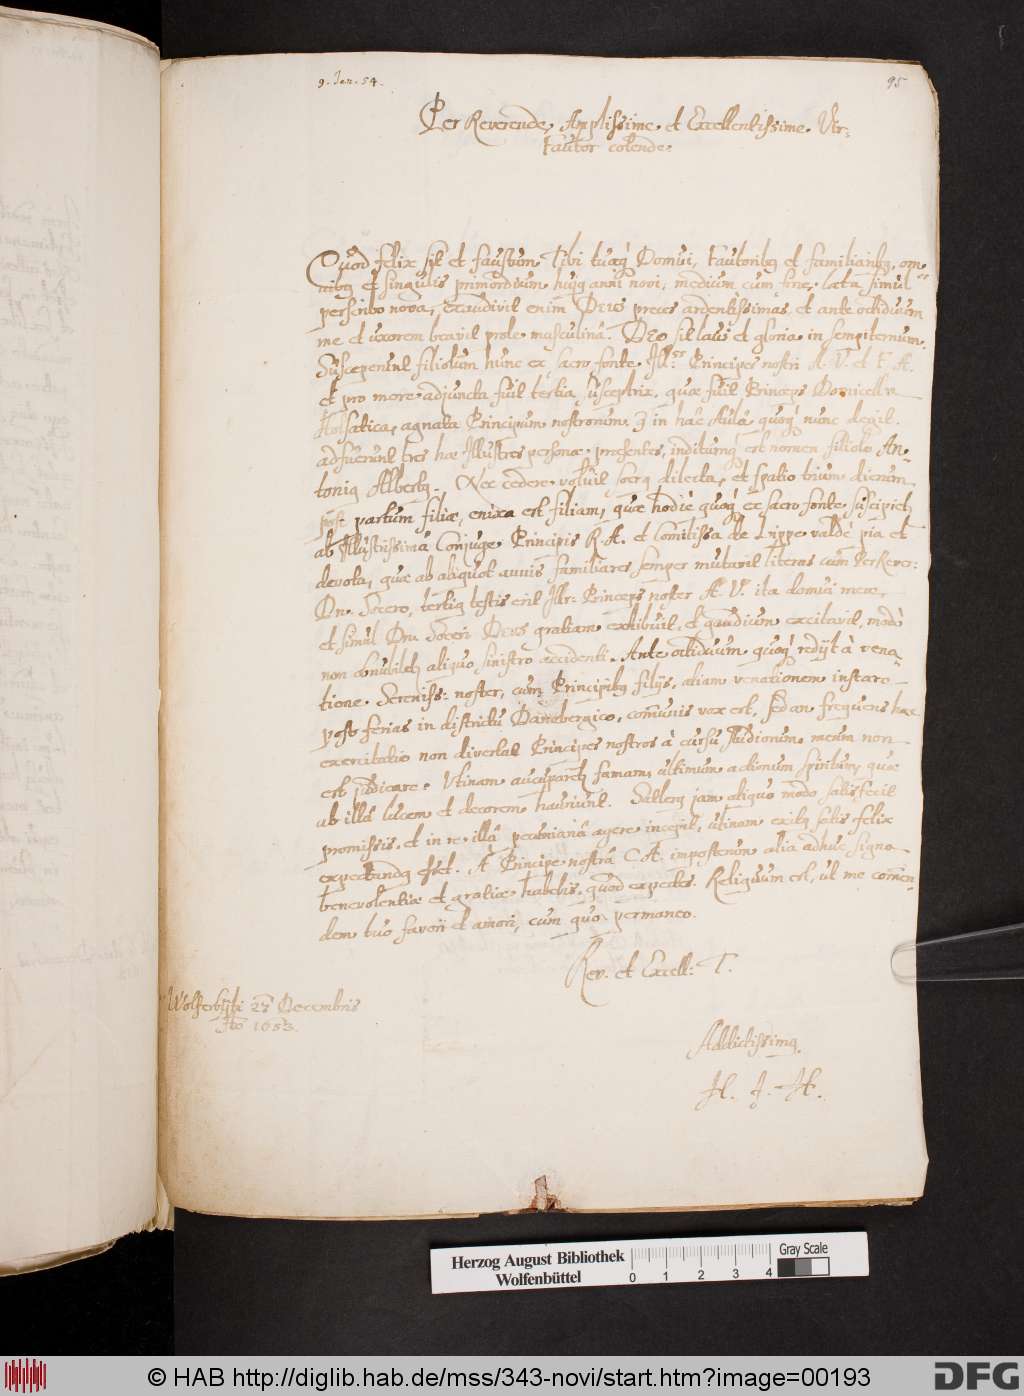 9. Jan. 54.
95
Per Reverende, Amplissime et Excellentissime Vir
Fautor colende.
Quod felix sit et faustum Tibi tuæq; Domui, Fautoribq et familiaribq, om-
nibq et singulis primordium hujq anni novi, medium cum fine, læta simul
perscribo nova, Exaudivit enim Deus preces ardentissimas et ante octiduum
me et uxorem beavit prole masculinâ. Deo sit laus et gloria in sempiternum.
Susceperunt filiolum hunc ex sacro fonte Ill.tr Principes nostri A. V. et F. A.
et pro more adjuncta fuit tertia susceptrix, quæ fuit Princeps Domicella
Holsatica, agnata Principum nostrorum in hâc Aulâ quoq; nunc degit.
adfuerunt tres hæ Illustres personæ præsentes, inditumq; est nomen filiolo An-
toniq Albertq. Nec cedere voluit socrq dilecta, et spatio trium dierum
post partum filiæ, enixa est filiam, quæ hodiè quoq; ex sacro fonte suscipietr
ab Illustrissimâ Conjuge Principis R. A. et Comitissa de Lippe valdè pia et
devota, quæ ab aliquot annis familiares semper mutavit literas cum PerRever:
Dn. Socero, tertiq testis erit Illr: Princeps noster A. V. ita domui meæ,
et simul Dn. Soceri Deus gratiam exhibuit, et gaudium excitavit, modò
non obnubiletr aliquo sinistro accidenti. Ante octiduum quoq; redijt à vena-
tione Sereniss: noster, cum Principibq filijs, aliam venationem instaro
post ferias in districtu Danebergico, com̄unis vox est, sed an frequens hæc
exercitatio non divertat Principes nostros à cursu studiorum meum non
est judicare. Utinam aucuparetr famam, ultimum actionum spiritum, quæ
ab illâ lucem et decorem hauriunt. Sattlerq jam aliquo modo satisfecit
promissis, et in re illâ pecuniariâ agere incepit, utinam exitq satis felix
expectandq esset. A Principe nostrâ C. A. imposterum alia adhuc signa
benevolentiæ et gratiæ habebis, quod expectes. Reliquum est, ut me com̄en-
dem tuo favori et amori, cum quo permaneo.
Rev. et Excell: T.
Wolferbyti 27 Decembris
Ao 1653.
Addictissimq
H. J. H.
Herzog August Bibliothek
Wolfenbüttel
0 1 2 3 4
Gray Scale
© HAB http://diglib.hab.de/mss/343-novi/start.htm?image=00193
DFG